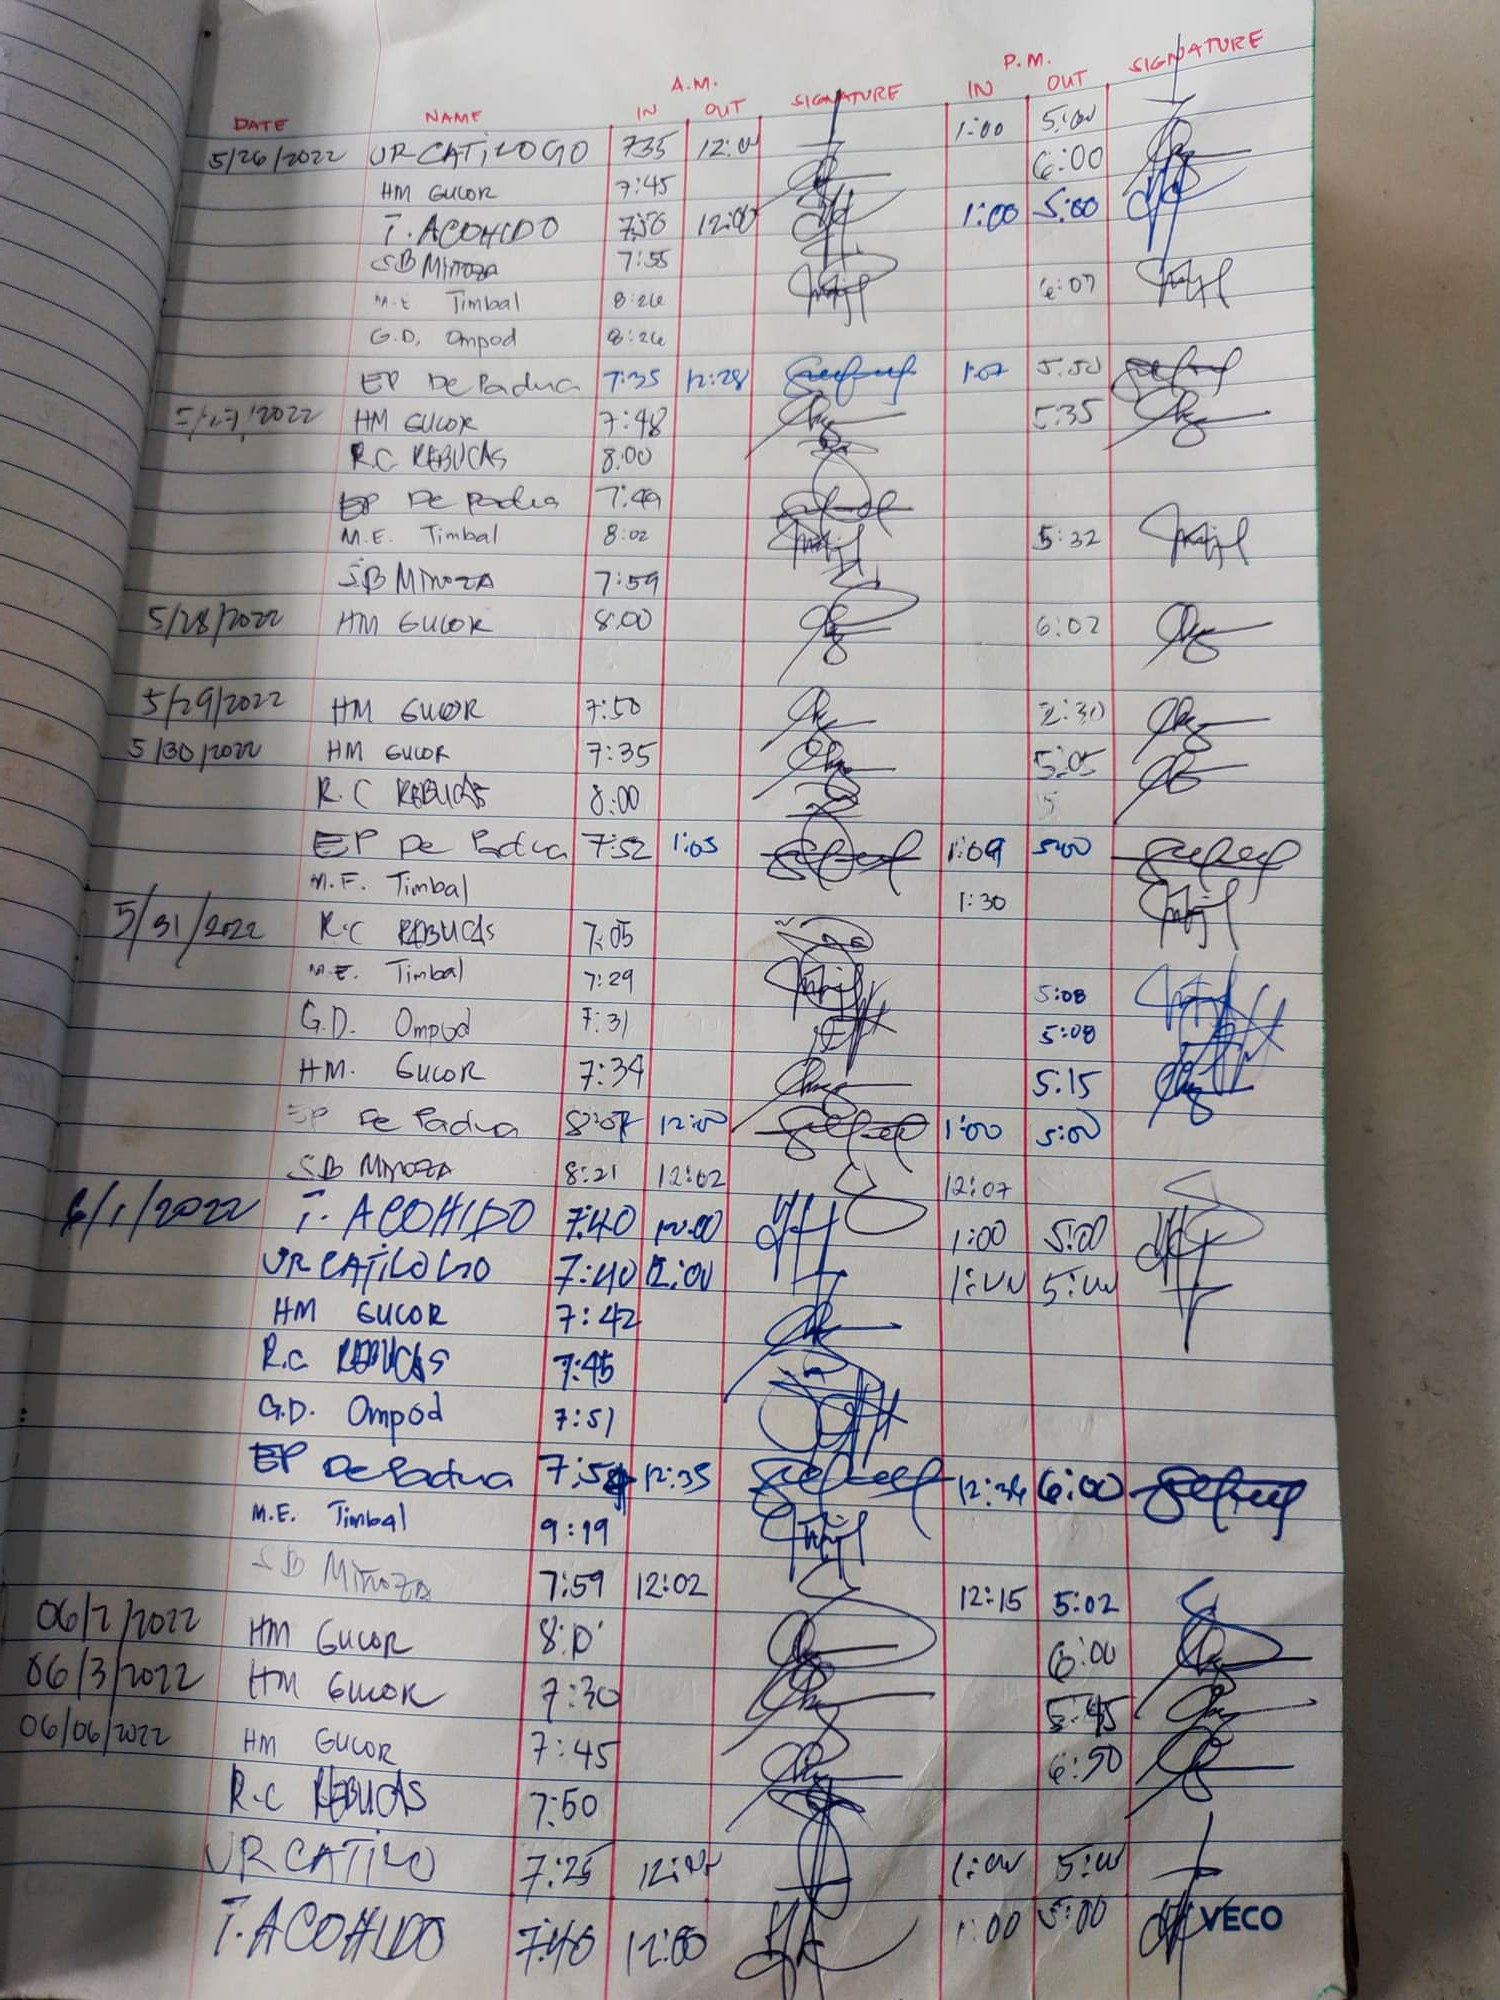 P.M. SIGNATURE
A.M. IN OUT
DATE NAME IN OUT SIGNATURE
5/26/2022 UR CATILOGO 735 12:00 1:00 5:00
HM GUCOR 7:45 6:00
T. ACOHIDO 7:50 12:00 1:00 5:00
SB MINOZA 7:55
M.E Timbal 8:26 6:07
G.D. Ompod 8:26
EP De Padua 7:35 12:28 1:07 5:50
5/27/2022 HM GUCOR 7:48 5:35
R.C REBUCAS 8:00
EP De Padua 7:49
M.E. Timbal 8:02 5:32
SB MINOZA 7:59
5/28/2022 HM GUCOR 8:00 6:02
5/29/2022 HM GUCOR 7:50 2:30
5/30/2022 HM GUCOR 7:35 5:05
R.C REBUCAS 8:00
EP De Padua 7:52 1:05 1:09 5:00
M.E. Timbal 1:30
5/31/2022 R.C REBUCAS 7:05
M.E. Timbal 7:29 5:08
G.D. Ompod 7:31 5:08
HM. GUCOR 7:34 5:15
EP De Padua 8:07 12:00 1:00 5:00
SB MINOZA 8:21 12:02 12:07
6/1/2022 T. ACOHIDO 7:40 12:00 1:00 5:00
UR CATILOGO 7:40 12:00 1:00 5:00
HM GUCOR 7:42
R.C REBUCAS 7:45
G.D. Ompod 7:51
EP De Padua 12:35 12:36 6:00
M.E. Timbal 9:19
SB MINOZA 7:59 12:02 12:15 5:02
06/2/2022 HM GUCOR 6:00
06/3/2022 HM GUCOR 7:30 5:45
06/06/2022 HM GUCOR 7:45 6:50
R.C REBUCAS 7:50
UR CATILO 7:25 12:00 1:00 5:00
T. ACOHIDO 7:40 12:00 1:00 5:00
VECO